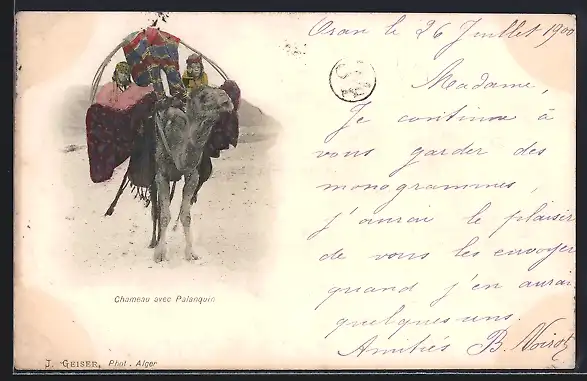 Oran le 26 Juillet 1900
Madame,
Je continue à
vous garder des
monogrammes,
j'aurai le plaisir
de vous les envoyer
quand j'en aurai
quelques uns.
Amitiés B. Noirot
Chameau avec Palanquin
J. GEISER, Phot. Alger